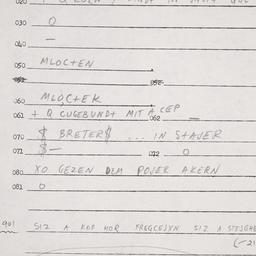 020
030 O
040 —
050 MLOCTEN
052-
060 MLOCTEK
061 + Q CUGEBUNDT MIT A CEP 062 —
070 $ BRETER$ ... IN STAJER
071 $— 072 O
080 XO GEZEN DEM POJER AKERN
081 O
SIZ A KOF HOR FREGCEJXN SIZ A
(-21